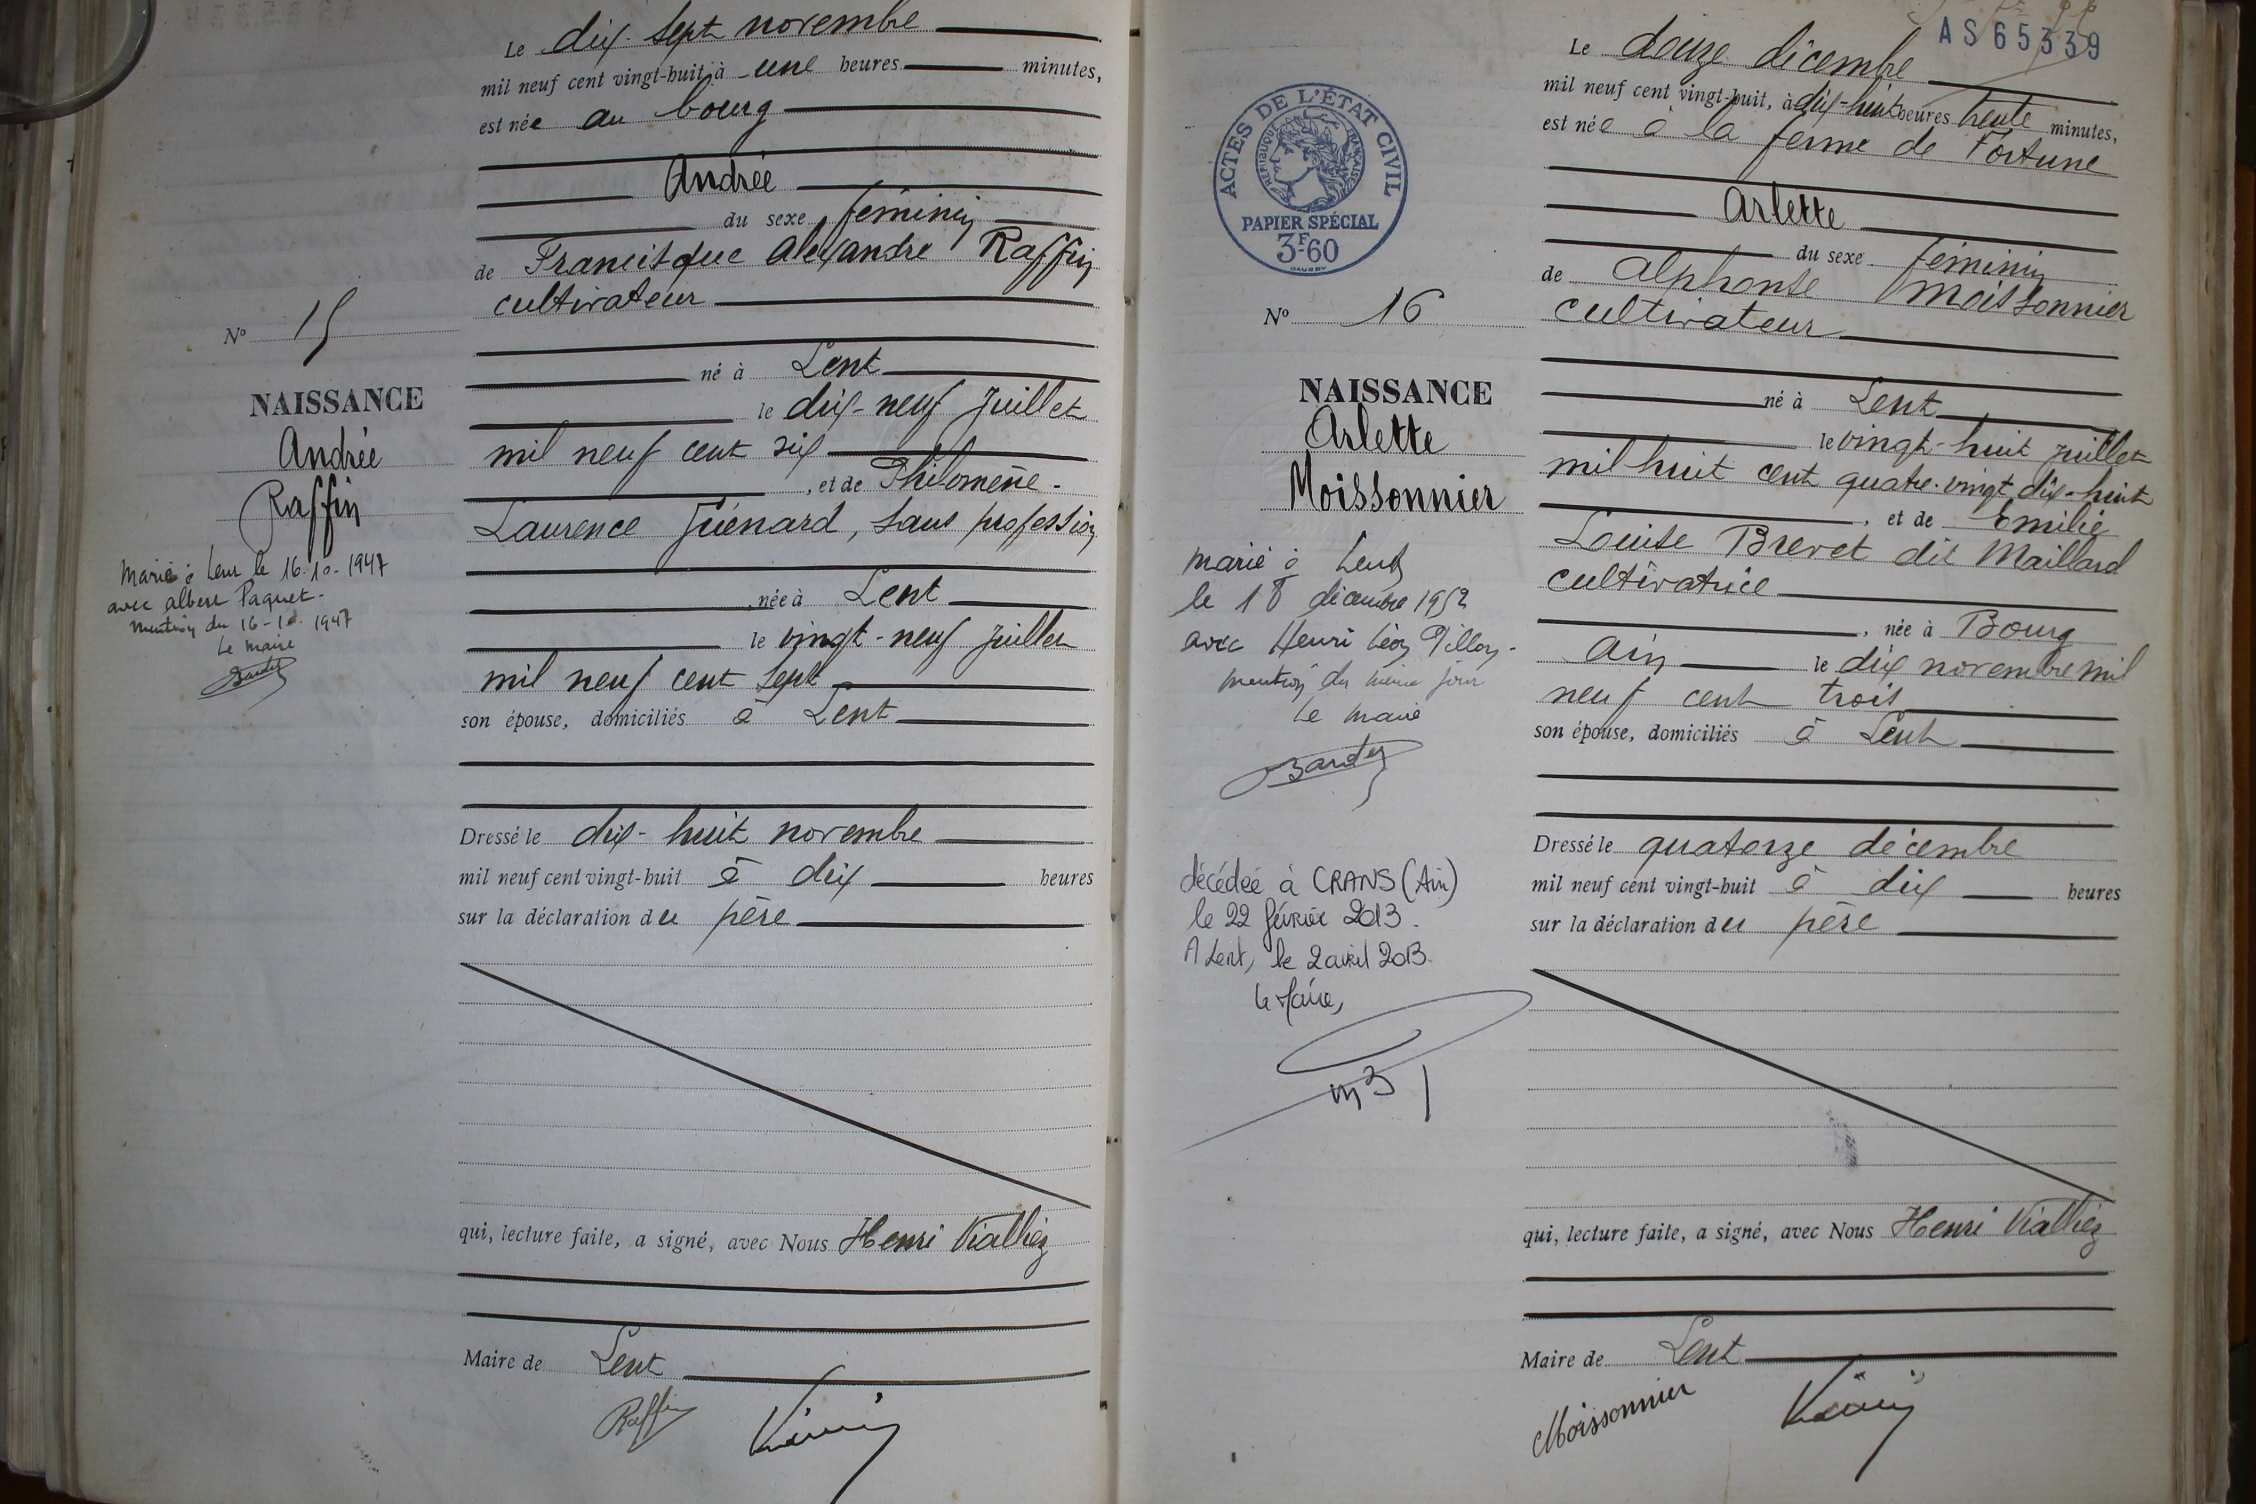 Le dix-sept novembre
mil neuf cent vingt-huit, à une heures minutes,
est née au bourg
Andrée
du sexe féminin
de Francisque Alexandre Raffin
cultivateur
né à Lent
le dix-neuf juillet
mil neuf cent six
, et de Philomène-
Laurence Guénard, sans profession
, née à Lent
le vingt-neuf juillet
mil neuf cent sept
son épouse, domiciliés à Lent
Dressé le dix-huit novembre
mil neuf cent vingt-huit à dix heures
sur la déclaration du père
qui, lecture faite, a signé, avec Nous Henri Vialliez
Maire de Lent
Raffin
No 15
NAISSANCE
Andrée
Raffin
Marié à Lent le 16.10.1947
avec Albert Paquet.
Mention du 16-10.1947
Le maire
AS65339
ACTES DE L'ÉTAT CIVIL
RÉPUBLIQUE FRANÇAISE
PAPIER SPÉCIAL
3F60
No 16
NAISSANCE
Arlette
Moissonnier
marié à Lent
le 18 décembre 1952
avec Henri Léon Pillon.
mention du même jour
Le maire
décédée à CRANS (Ain)
le 22 février 2013.
A Lent, le 2 avril 2013.
Le Maire,
Le douze décembre
mil neuf cent vingt-huit, à dix-huit heures trente minutes,
est née à la ferme de Fortune
Arlette
du sexe féminin
de Alphonse Moissonnier
cultivateur
né à Lent
le vingt-huit juillet
mil huit cent quatre-vingt dix-huit
, et de Emilie
Louise Brevet dit Maillard
cultivatrice
, née à Bourg
Ain le dix novembre mil
neuf cent trois
son épouse, domiciliés à Lent
Dressé le quatorze décembre
mil neuf cent vingt-huit à dix heures
sur la déclaration du père
qui, lecture faite, a signé, avec Nous Henri Vialliez
Maire de Lent
Moissonnier